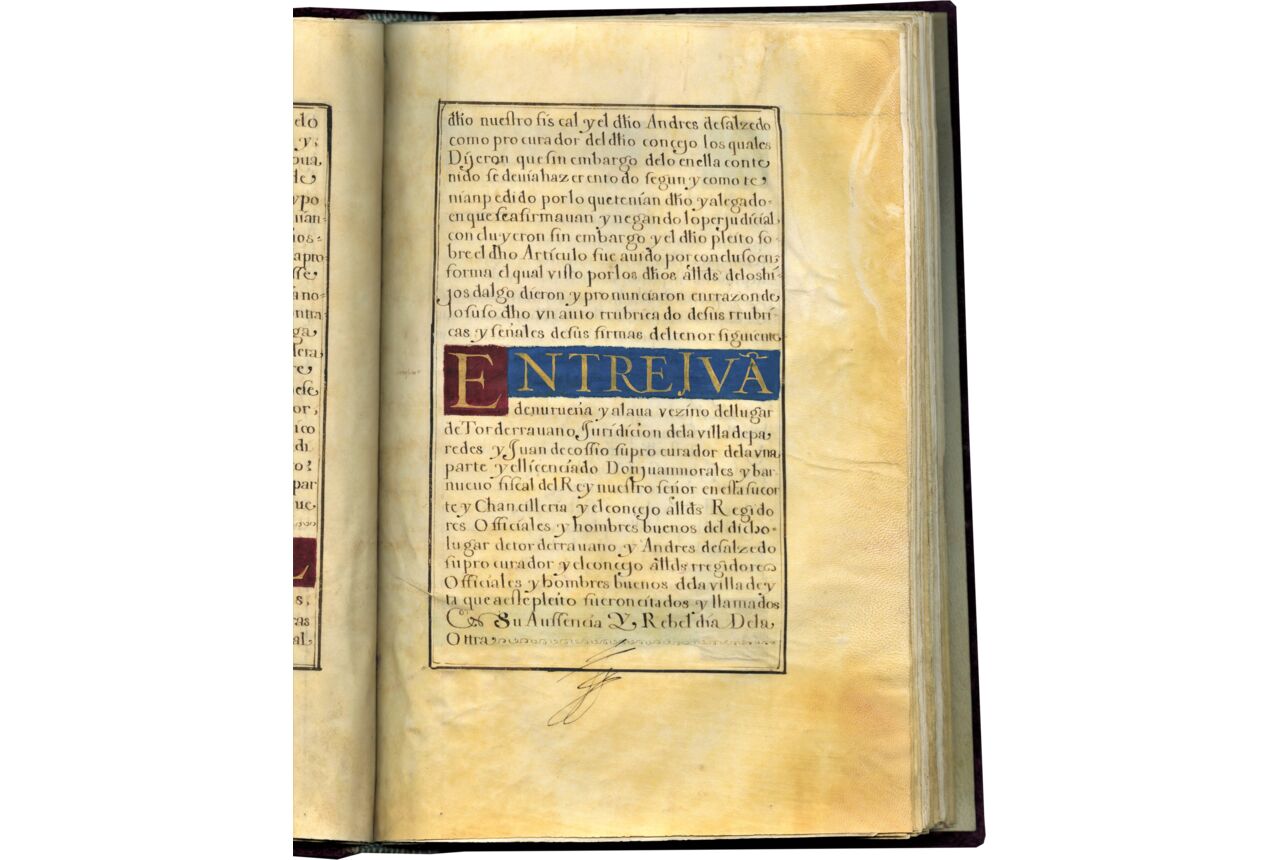 do
y
ypo
apro
ga
ico
di
par
ue
L
dho nuestro fis cal y el dho Andres de salzedo
como pro curador del dho conçejo los quales
Dijeron que sin embargo delo en ella conte
nido se deuia haz er ento do segun y como te
nian pedido por lo que tenían dho y alegado
en que se afirmauan y negando lo perjudicial
con clu yeron sin embargo y el dho pleito so
bre el dho Artículo fue auido por concluso en
forma el qual visto por los dhos allds de los hi
jos dalgo dieron y pro nunciaron en rrazon de
lo suso dho vn auto rrubrica do de sus rrubri
cas y señales de sus firmas del tenor siguiente
ENTRE JVÃ
de nurueña y alaua vezino del lugar
de Tor derrauano Juridicion de la villa de pa
redes y Juan de cossio su pro curador de la vna
parte y el licenciado Don juan morales y bar
nueuo fiscal del Rey nuestro señor en esta su cor
te y Chancilleria y el conçejo allds Regido
res Officiales y hombres buenos del dicho
lugar de tor derrauano y Andres de salzedo
su pro curador y el conçejo allds rregidores
Officiales y hombres buenos de la villa de y
ta que a este pleito fueron citados y llamados
En Su Aussencia Y Rebel día De la
Ottra